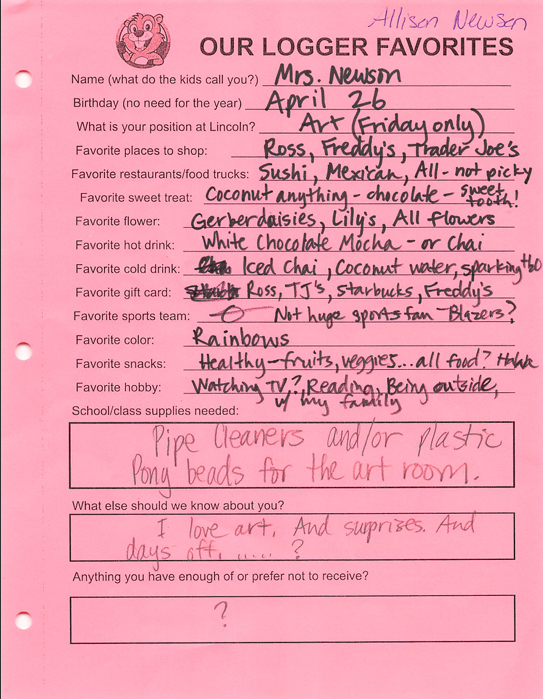 Allison Newson
OUR LOGGER FAVORITES
Name (what do the kids call you?) Mrs. Newson
Birthday (no need for the year) April 26
What is your position at Lincoln? Art (Friday only)
Favorite places to shop: Ross, Freddy's, Trader Joe's
Favorite restaurants/food trucks: Sushi, Mexican, All - not picky
Favorite sweet treat: Coconut anything - chocolate - sweet tooth!
Favorite flower: Gerberdaisies, Lily's, All flowers
Favorite hot drink: White Chocolate Mocha - or Chai
Favorite cold drink: Iced Chai, Coconut water, sparking H2O
Favorite gift card: Ross, TJ's, Starbucks, Freddy's
Favorite sports team: Not huge sports fan - Blazers?
Favorite color: Rainbows
Favorite snacks: Healthy-fruits, veggies...all food?
Favorite hobby: Watching TV?, Reading, Being outside,
w/ my family
School/class supplies needed:
Pipe Cleaners and/or plastic
Pony beads for the art room.
What else should we know about you?
I love art. And surprises. And
days off. ..... ?
Anything you have enough of or prefer not to receive?
?